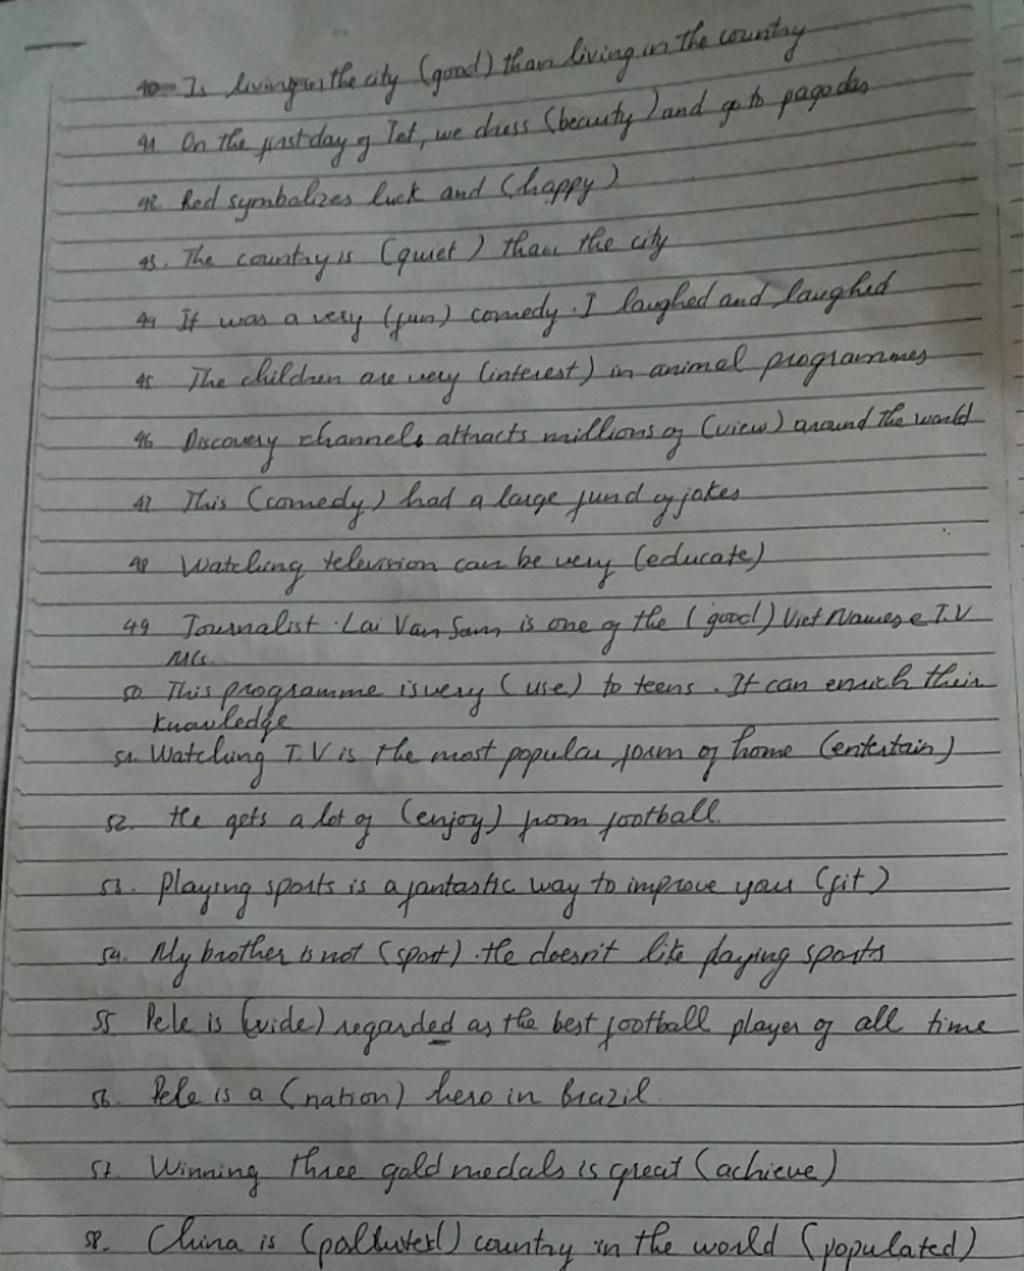 40 Is living in the city (good) than living in the country
41 On the first day of Tet, we dress (beauty) and go to pagodas
42. Red symbolizes luck and (happy)
43. The country is (quiet) than the city
44 It was a very (fun) comedy. I laughed and laughed
45 The children are very (interest) in animal programmes
46 Discovery channels attracts millions of (view) around the world
47 This (comedy) had a large fund of jokes
48 Watching television can be very (educate)
49 Journalist Lai Van Sam is one of the (good) Viet Namese T.V
MCs.
50 This programme is very (use) to teens. It can enrich their
knowledge
51. Watching T.V is the most popular form of home (entertain)
52. He gets a lot of (enjoy) from football.
53. Playing sports is a fantastic way to improve your (fit)
54. My brother is not (sport). He doesn't like playing sports
55 Pele is (wide) regarded as the best football player of all time
56. Pele is a (nation) hero in Brazil
57. Winning three gold medals is great (achieve)
58. China is () country in the world (populated)